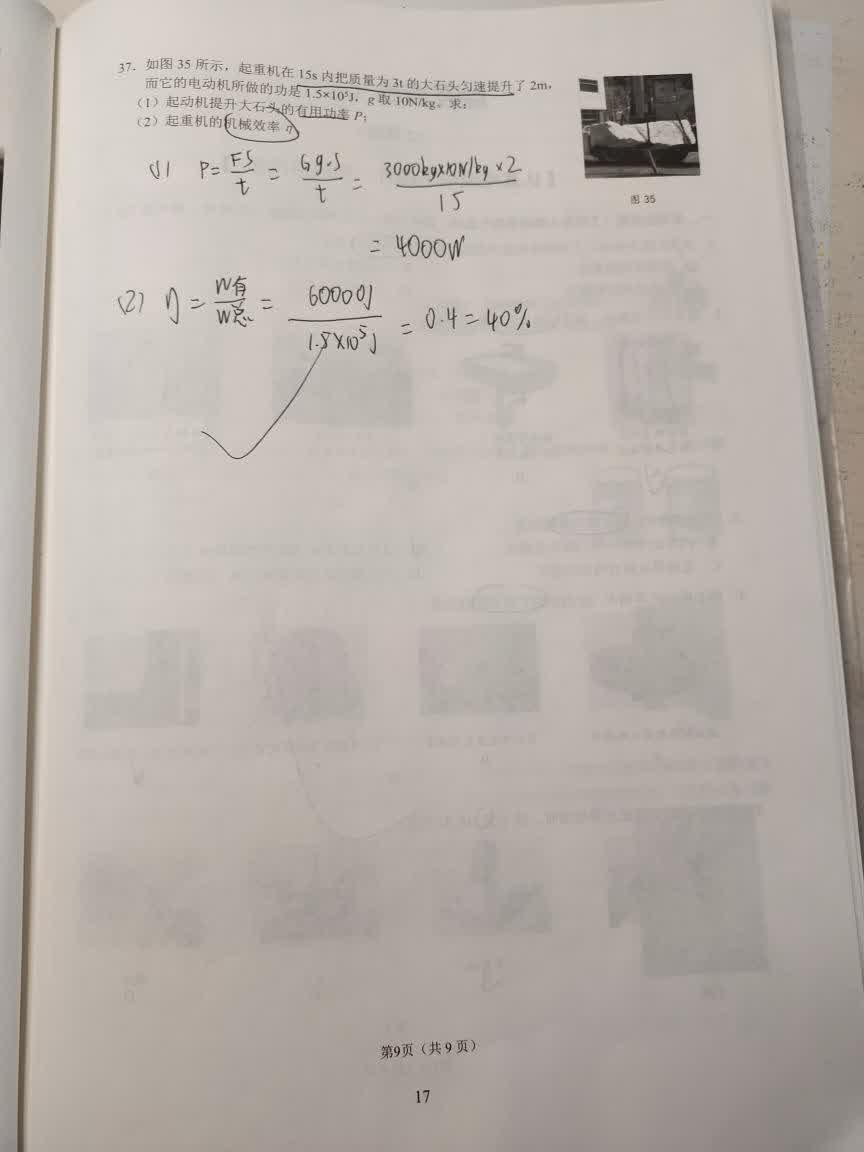 37. 如图 35 所示，起重机在 15s 内把质量为 3t 的大石头匀速提升了 2m，
而它的电动机所做的功是 1.5×10⁵J，g 取 10N/kg。求：
（1）起动机提升大石头的有用功率 P；
（2）起重机的机械效率 η
图 35
(1) P = FS/t = Gg·S/t = 3000kg×10N/kg×2/15
= 4000W
(2) η = W有/W总 = 60000J/1.5×10⁵J = 0.4 = 40%
第9页（共 9 页）
17